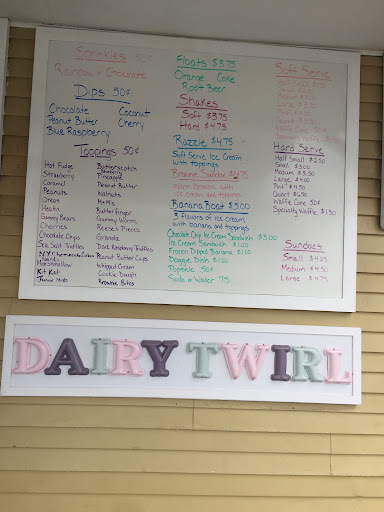 Sprinkles 50¢
Rainbow + Chocolate
Dips 50¢
Chocolate Coconut
Peanut Butter Cherry
Blue Raspberry
Toppings 50¢
Hot Fudge Butterscotch
Strawberry Blueberry
Pineapple
Caramel Peanut Butter
Peanuts Walnuts
Oreos M+M's
Heath Butterfinger
Gummy Bears Gummy Worms
Cherries Reeses Pieces
Chocolate Chips Granola
Sea Salt Truffles Dark Raspberry Truffles
NY Cheesecake Cubes Peanut Butter Cups
Nerds
Marshmallow Whipped Cream
Kit Kat Cookie Dough
Junior Mints Brownie Bites
Floats $3.75
Orange Coke
Root Beer
Shakes
Soft $3.75
Hard $4.75
Razzle $4.75
Soft Serve Ice Cream
with toppings
Brownie Sundae $6.75
Warm brownie with
ice cream and toppings
Banana Boat $5.00
3 flavors of ice cream
with banana and toppings
Chocolate Chip Ice Cream Sandwich $3.00
Ice Cream Sandwich $1.00
Frozen Dipped Banana $1.00
Doggie Dish $1.00
Popsicle 50¢
Soda or Water .75
Soft Serve
Hard Serve
Half Small $2.50
Small $3.00
Medium $3.50
Large $4.00
Pint
Quart
Waffle Cone 50¢
Specialty Waffle $1.50
Sundaes
Small $4.25
Medium $4.50
Large $4.75
DAIRY TWIRL